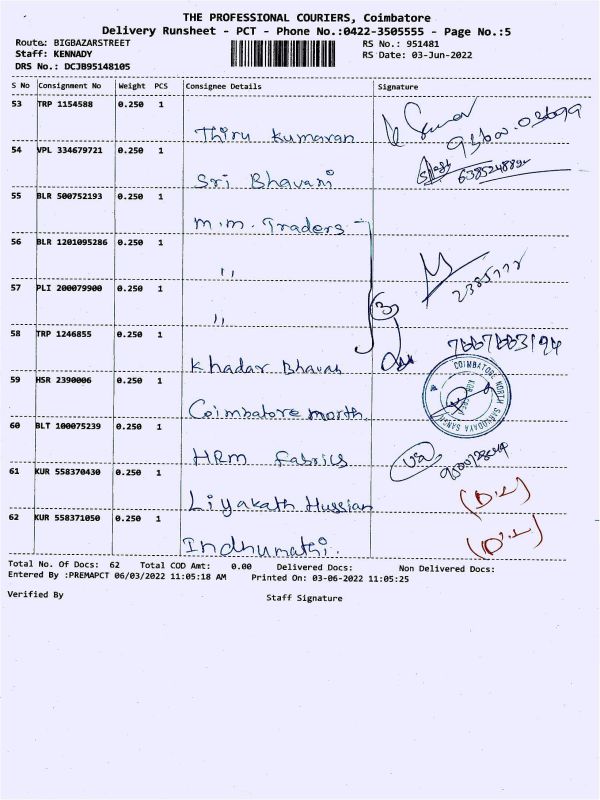 THE PROFESSIONAL COURIERS, Coimbatore
Delivery Runsheet - PCT - Phone No.:0422-3505555 - Page No.:5
Route: BIGBAZARSTREET RS No.: 951481
Staff: KENNADY RS Date: 03-Jun-2022
DRS No.: DCJB95148105
S No Consignment No Weight PCS Consignee Details Signature
53 TRP 1154588 0.250 1
Thiru Kumaran
54 VPL 334679721 0.250 1
Sri Bhavani
55 BLR 500752193 0.250 1
M.M. Traders
56 BLR 1201095286 0.250 1
"
57 PLI 200079900 0.250 1
"
3
58 TRP 1246855 0.250 1
Khadar Bhavas
59 HSR 2390006 0.250 1
COIMBATORE NORTH SARVODAYA SANGH
Coimbatore north
60 BLT 100075239 0.250 1
HRM Fabrics
61 KUR 558370430 0.250 1
Liyakath Hussian (D.L)
62 KUR 558371050 0.250 1
Indhumathi. (D.L)
Total No. Of Docs: 62 Total COD Amt: 0.00 Delivered Docs: Non Delivered Docs:
Entered By :PREMAPCT 06/03/2022 11:05:18 AM Printed On: 03-06-2022 11:05:25
Verified By Staff Signature